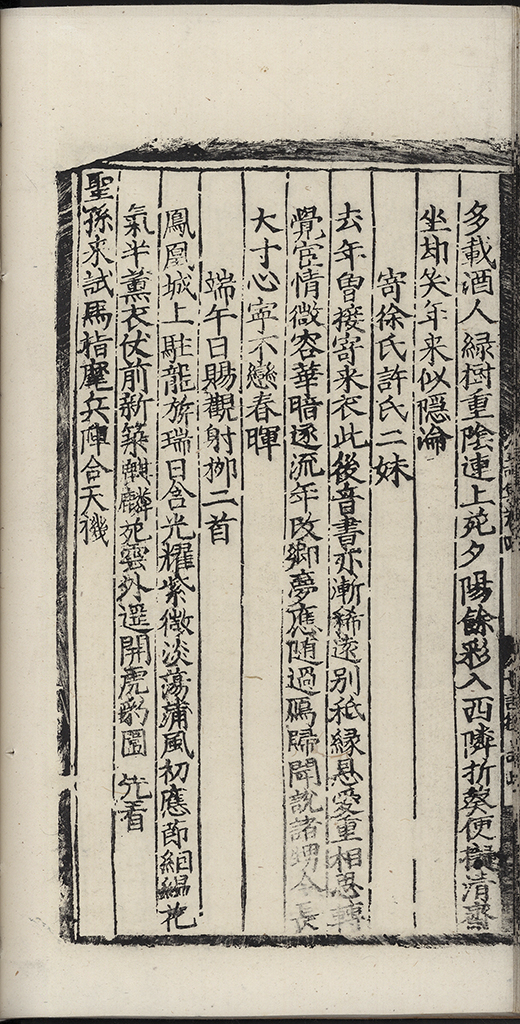 多載酒人緑樹重陰連上苑夕陽餘彩入西隣折葵便擬清齋
坐却笑年来似隠淪
寄徐氏許氏二妹
去年曽接寄来衣此後音書亦漸稀遠别秪縁恩愛重相思轉
覺宦情微容華暗逐流年改鄉夢應随過鴈歸聞說諸甥今長
大寸心寧不戀春暉
端午日賜觀射柳二首
鳳凰城上駐龍旂瑞日含光耀紫微淡蕩蒲風初應節絪縕花
氣半薫衣仗前新築麒麟苑雲外遥開虎豹圍 先看
聖孫来試馬指麾兵陣合天機